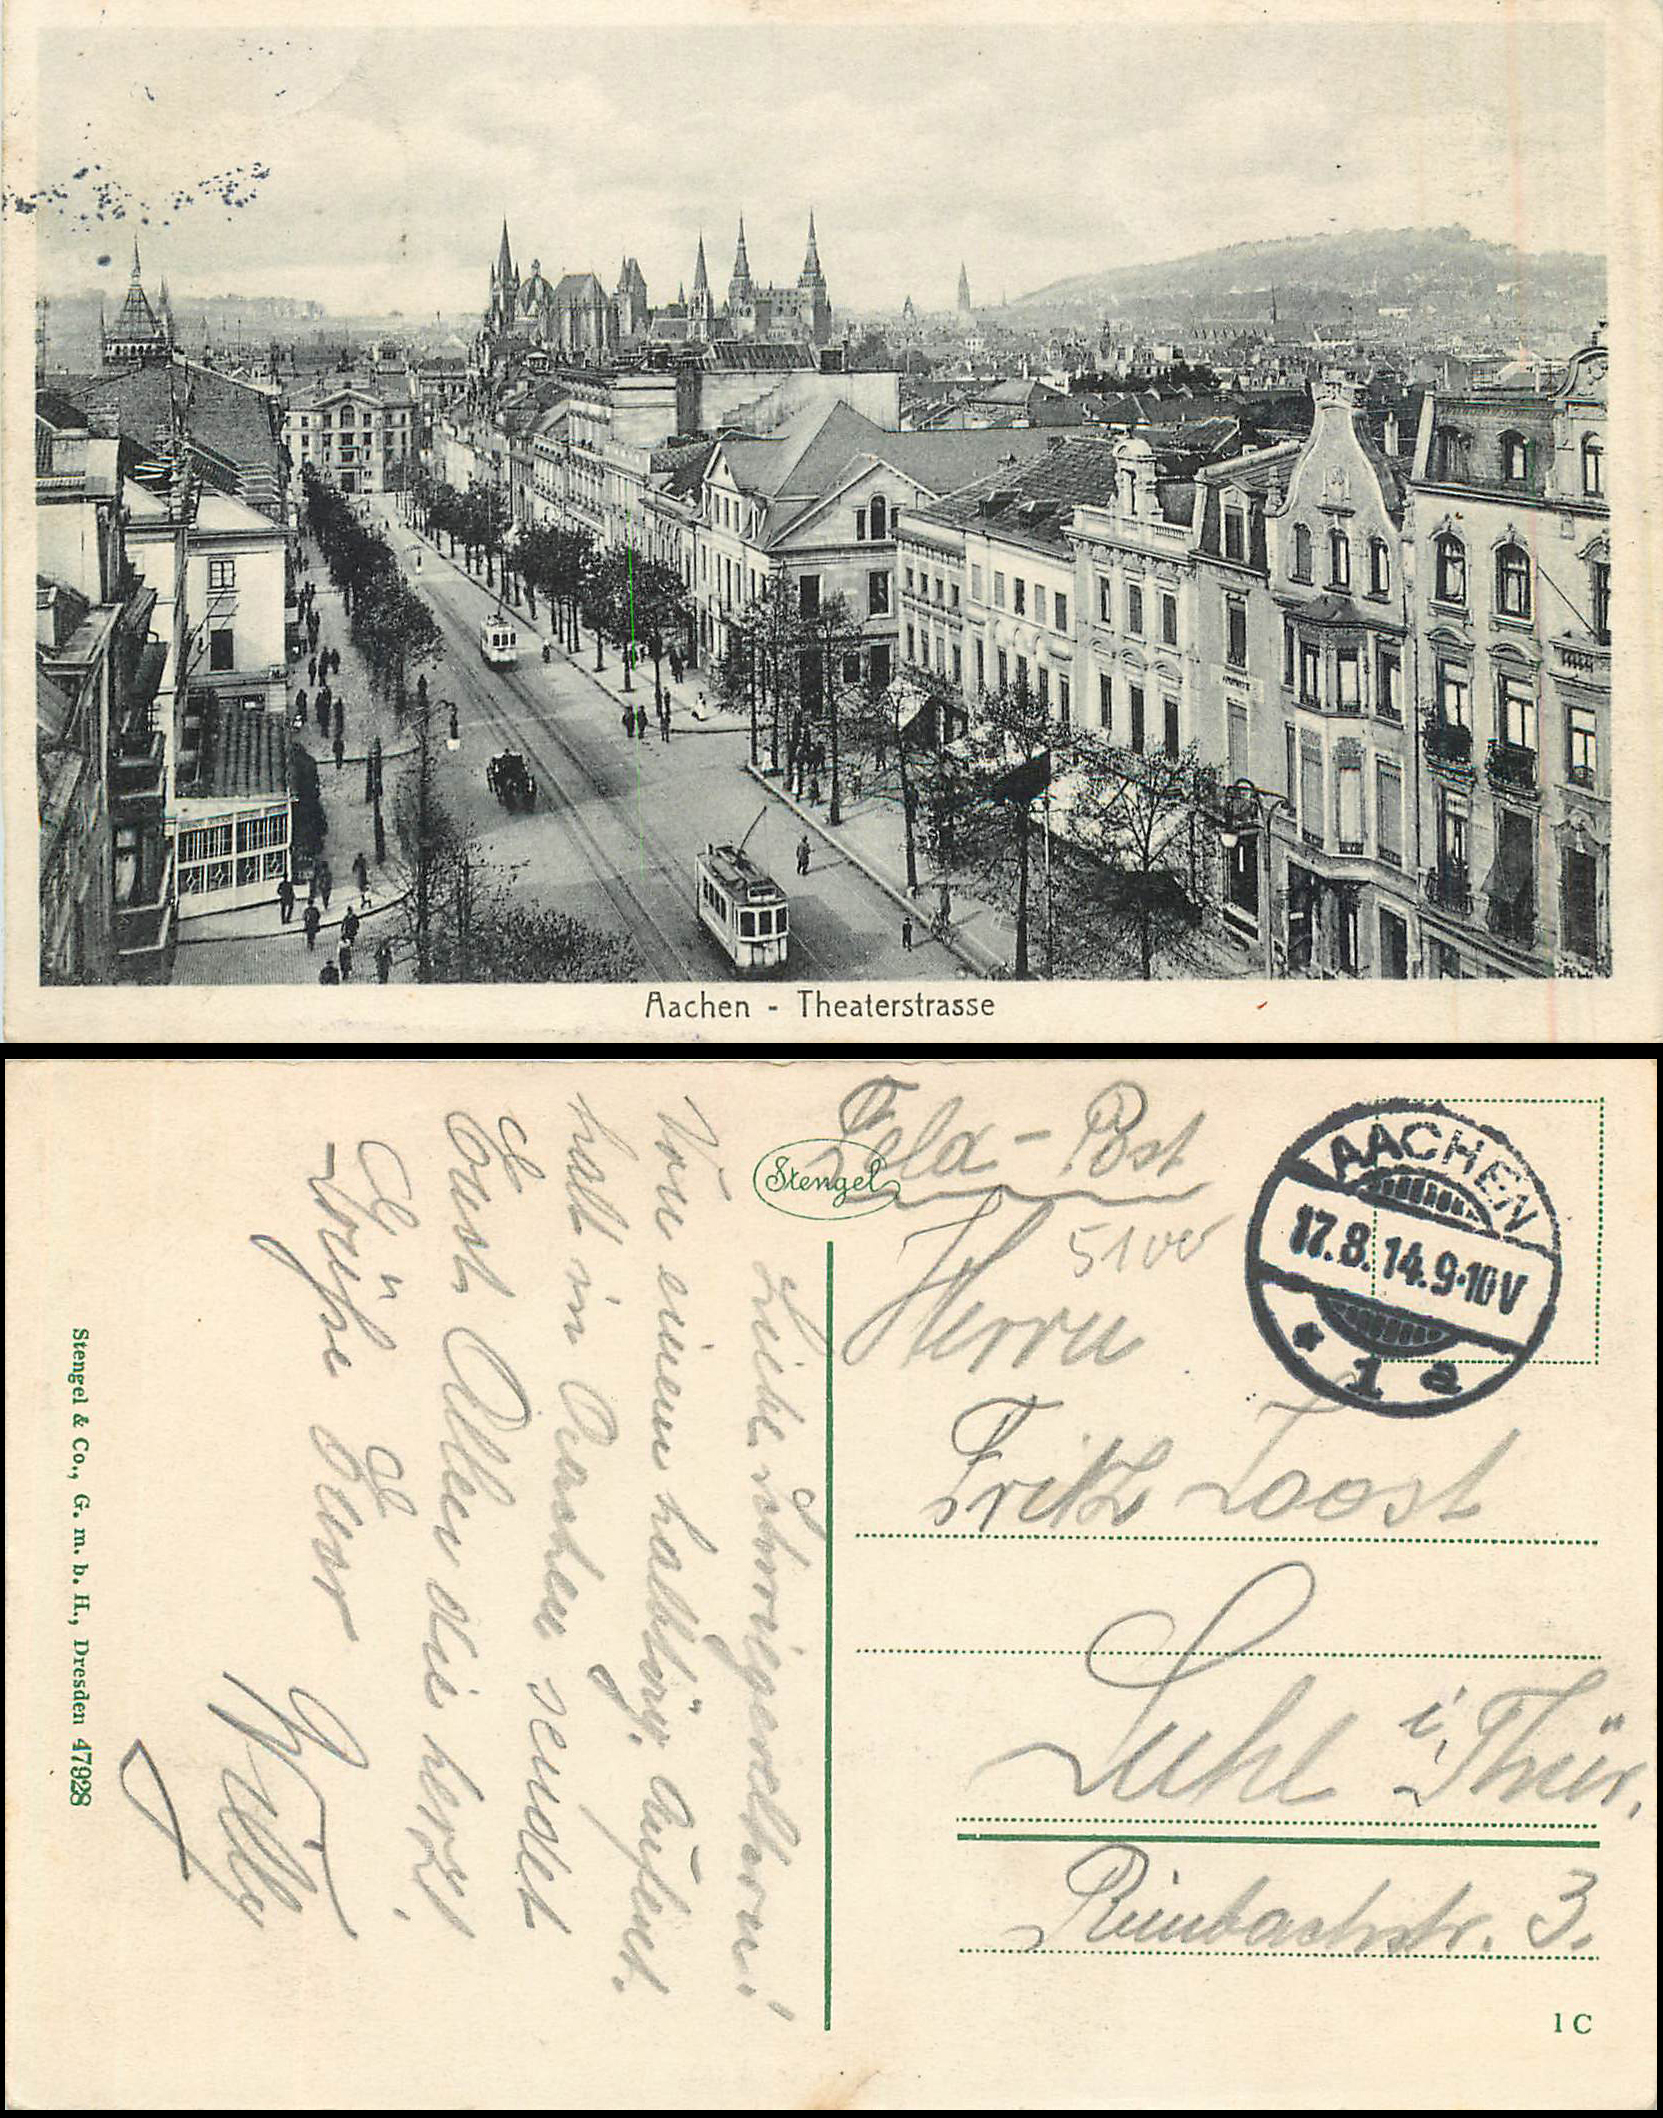 Aachen - Theaterstrasse
Feld-Post
Stengel
AACHEN
17.8.14.9-10V
* 1 a
Herrn
Fritz Joost
Suhl i, Thür.
Rimbachstr. 3.
1 C
Liebe Schwiegereltern!
Von einem halbtäg. Aufent
halt in Aachen sendet
Euch Allen die herzl.
Grüße Euer
Willy
Stengel & Co., G. m. b. H., Dresden 47928